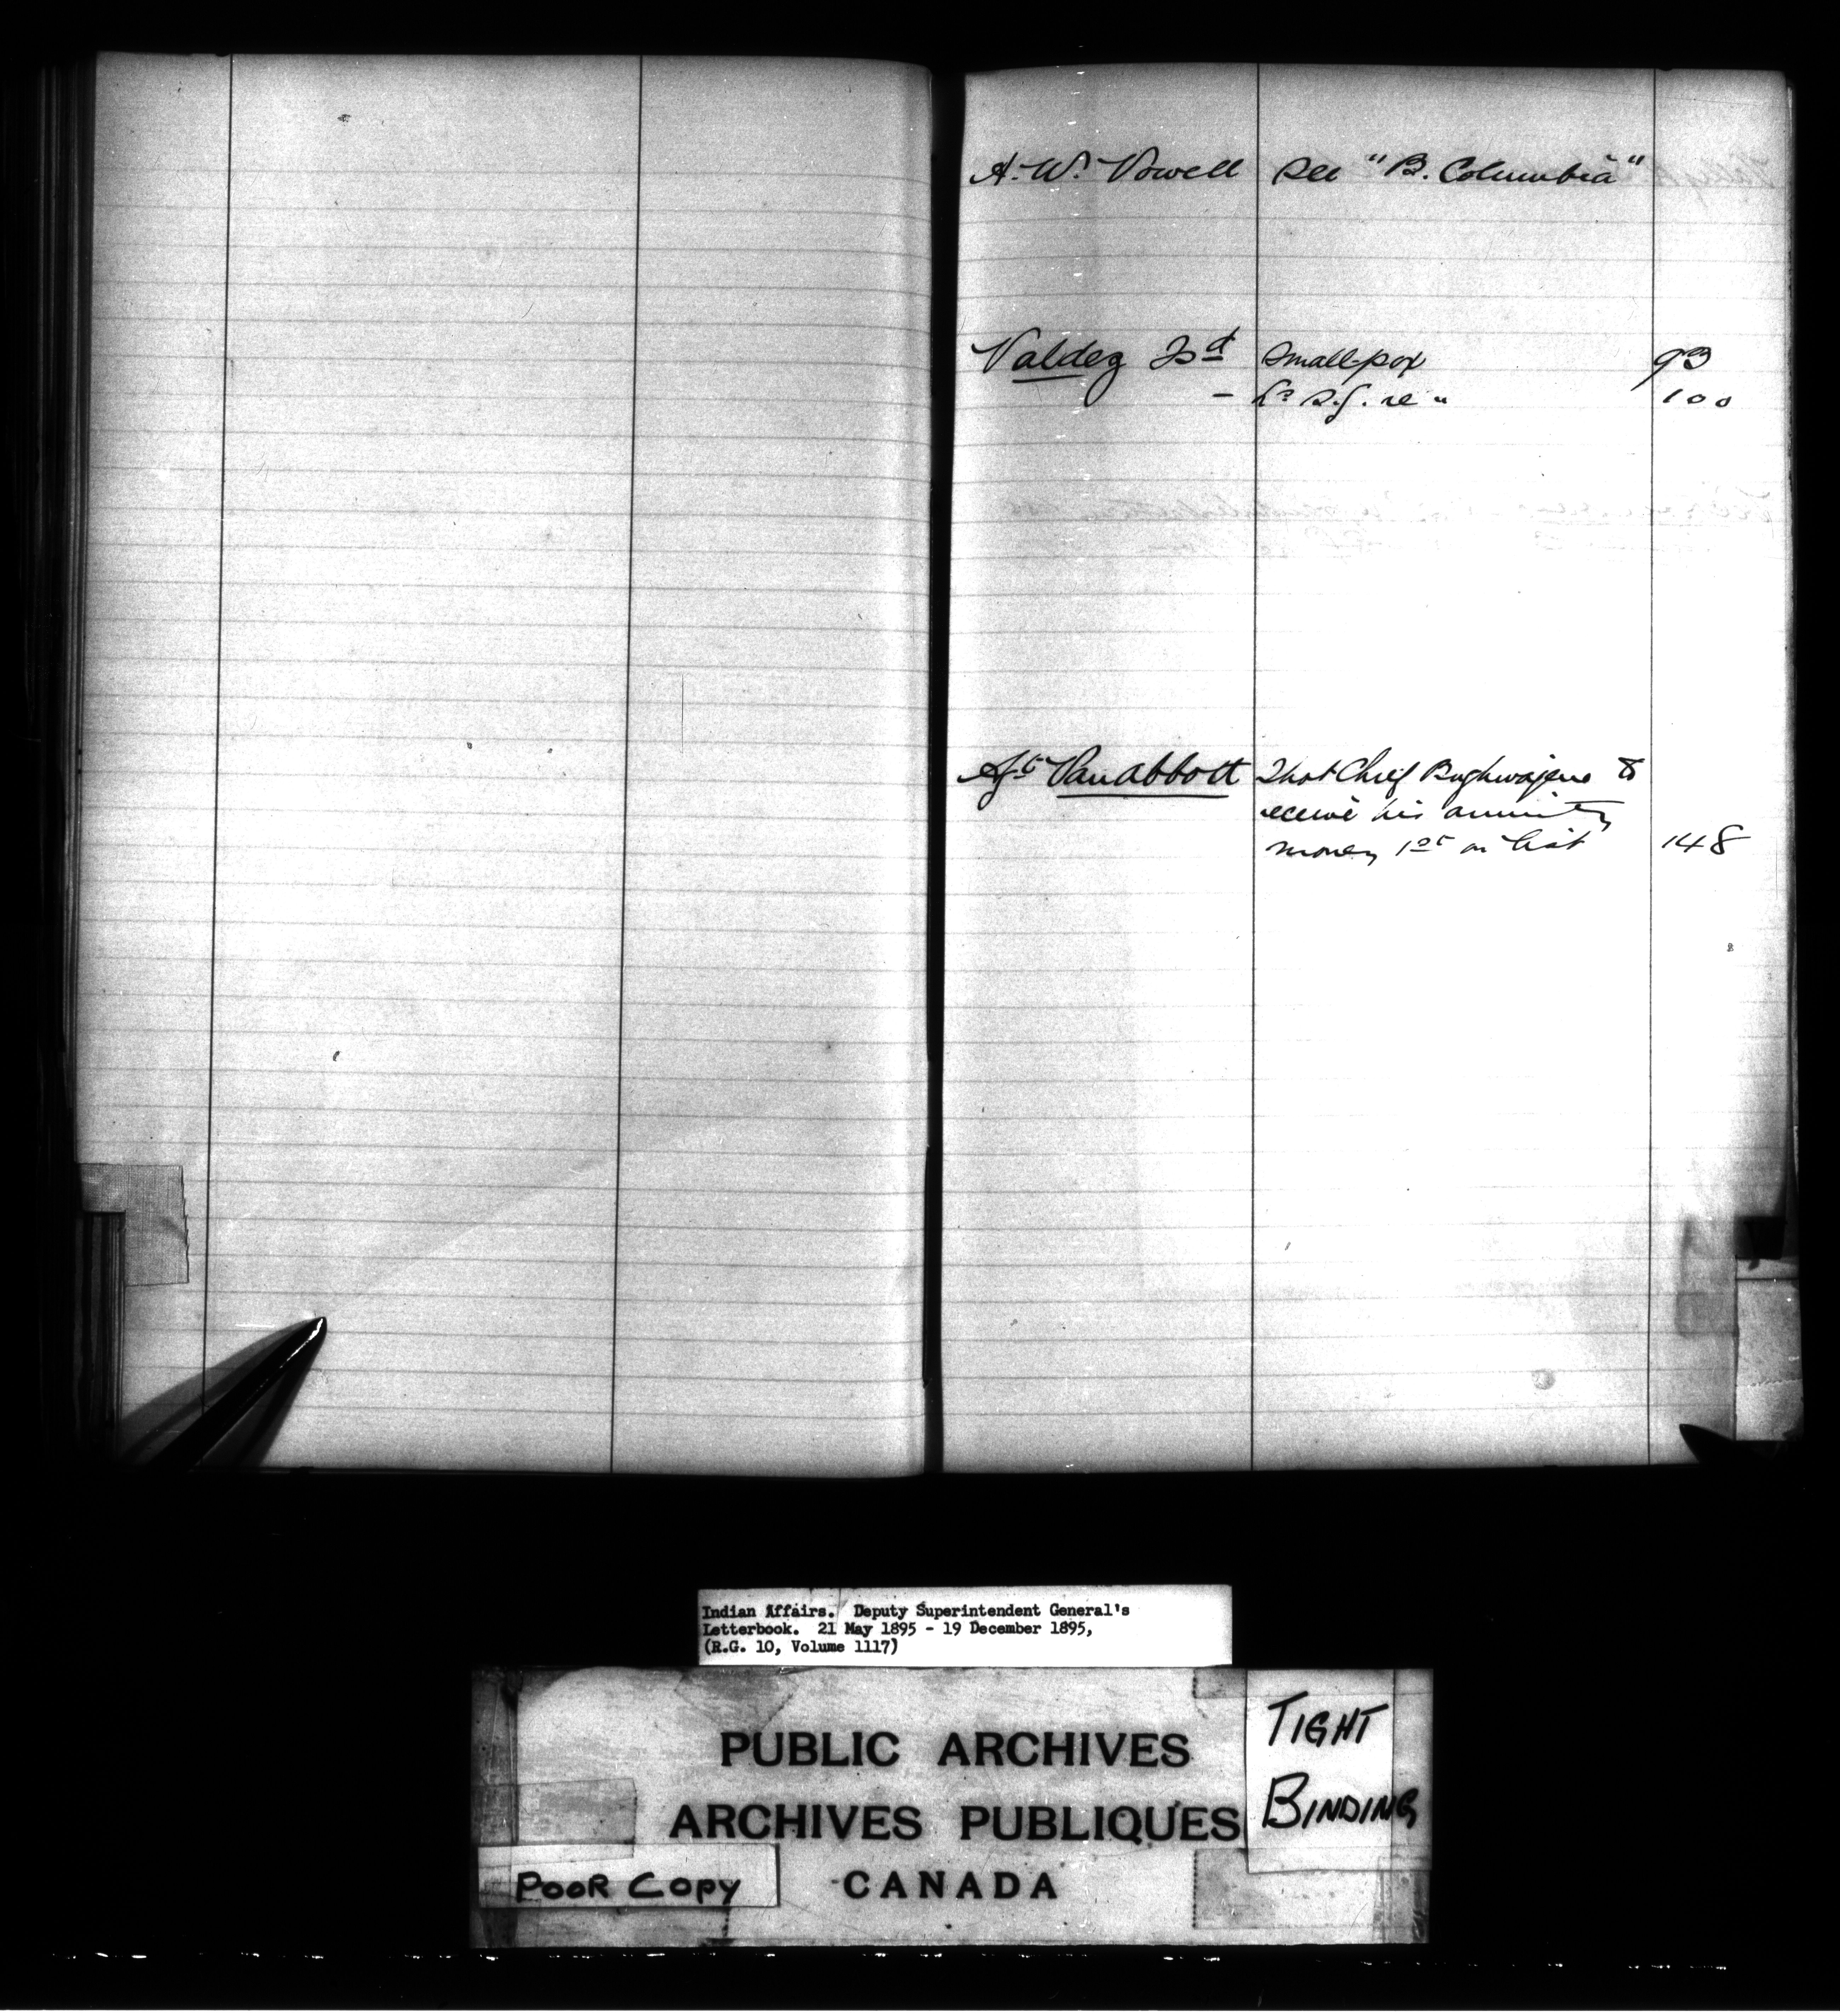 A. W. Vowell See "B. Columbia"
Valdez Isd Small-pox 93
- re " 100
Agt Van Abbott That Chief Bughwajene to
receive his annuity
money 1st on list 148
Indian Affairs. Deputy Superintendent General's
Letterbook. 21 May 1895 - 19 December 1895,
(R.G. 10, Volume 1117)
PUBLIC ARCHIVES
ARCHIVES PUBLIQUES
CANADA
TIGHT
BINDING
POOR COPY